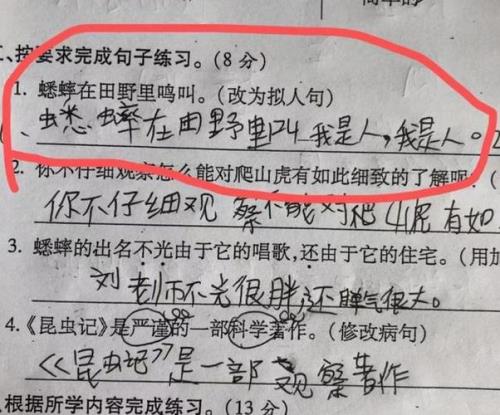 、按要求完成句子练习。(8分)
1. 蟋蟀在田野里鸣叫。(改为拟人句)
蟋蟀在田野里叫我是人,我是人。
2. 你不仔细观察怎么能对爬山虎有如此细致的了解呢?(
你不仔细观察不能对爬山虎有如
3. 蟋蟀的出名不光由于它的唱歌,还由于它的住宅。(用加
刘老师不光很胖,还脾气很大。
4.《昆虫记》是严谨的一部科学著作。(修改病句)
《昆虫记》是一部观察著作
根据所学内容完成练习。(13分)